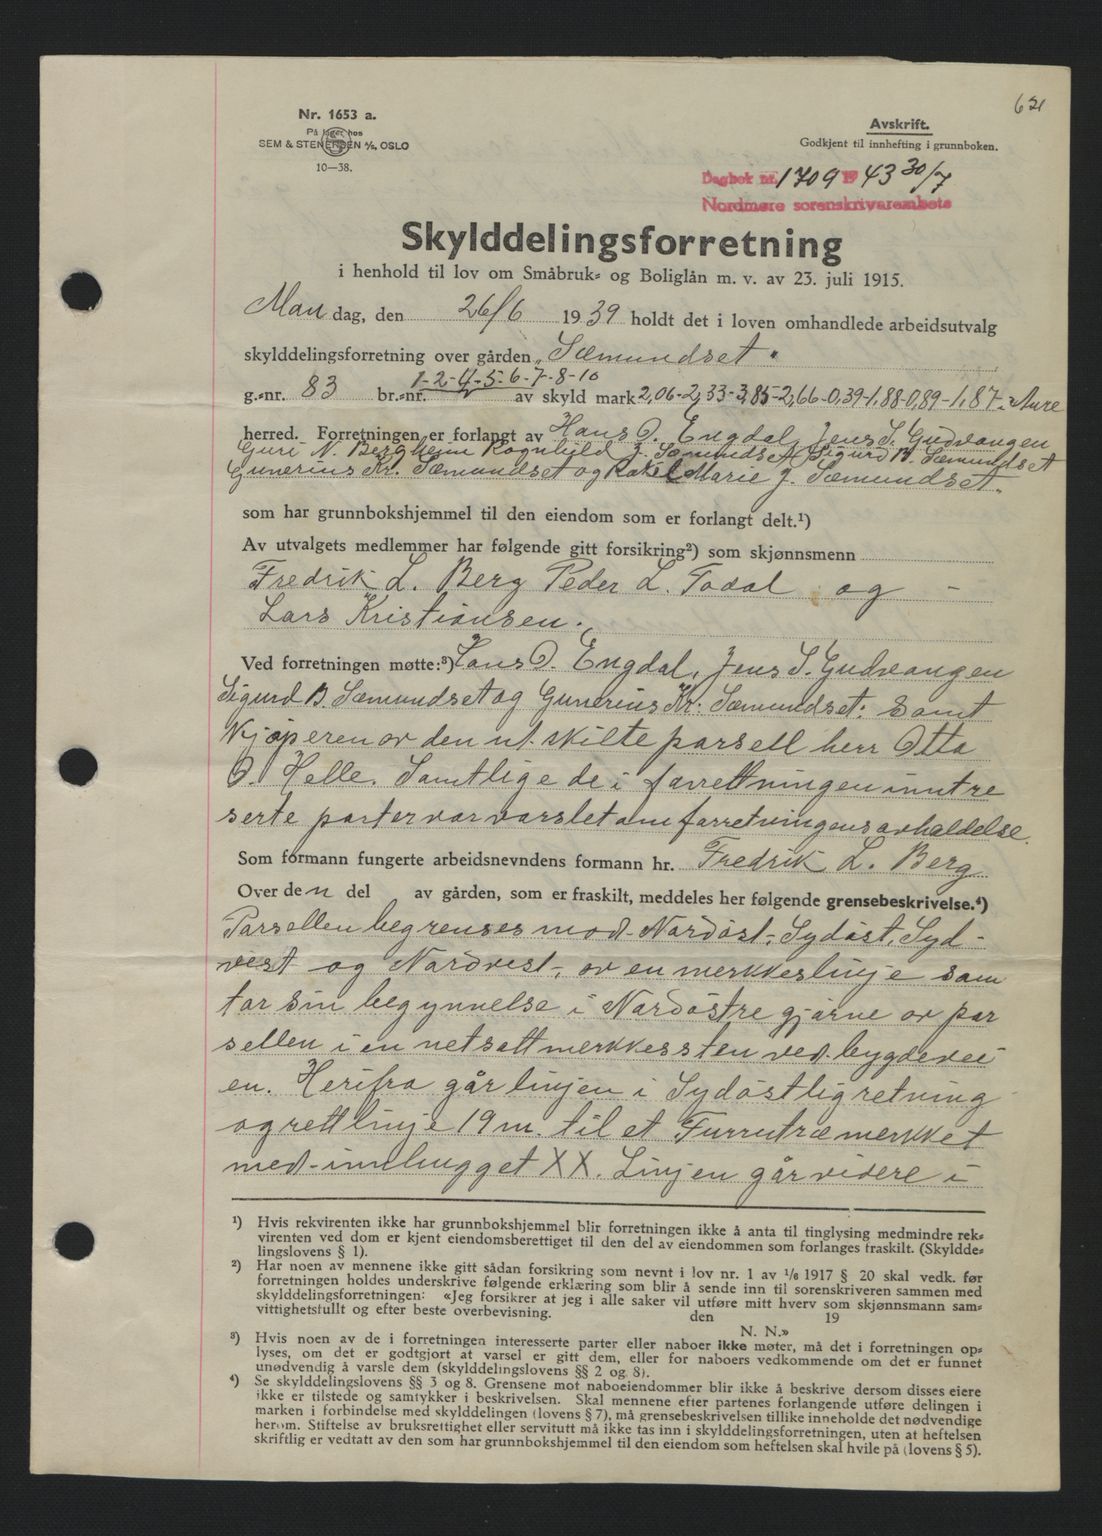 621
Nr. 1653 a.
På lager hos
SEM & STENERSEN A/S, OSLO
10—38.
Avskrift.
Godkjent til innhefting i grunnboken.
Dagbok nr. 1709 1943 30/7
Nordmøre sorenskriverembete
Skylddelingsforretning
i henhold til lov om Småbruk- og Boliglån m. v. av 23. juli 1915.
Man dag, den 26/6 1939 holdt det i loven omhandlede arbeidsutvalg
skylddelingsforretning over gården „Sæmundset"
g.-nr. 83 br.-nr. 1-2-4-5-6-7-8-10 av skyld mark 2,06-2,33-3,85-2,66-0,39-1,88-0,89-1,87 i Aure
herred. Forretningen er forlangt av Hans O. Engdal, Jens S. Gudvangen
Guri N. Bergheim Ragnhild J. Sæmundset Sigurd B. Sæmundset
Gunerius Kr. Sæmundset og Rakel Marie J. Sæmundset.
som har grunnbokshjemmel til den eiendom som er forlangt delt.¹)
Av utvalgets medlemmer har følgende gitt forsikring²) som skjønnsmenn
Fredrik L. Berg Peder L. Todal og -
Lars Kristiansen.
Ved forretningen møtte:³) Hans O. Engdal, Jens S. Gudvangen
Sigurd B. Sæmundset og Gunerius Kr. Sæmundset. Samt
Kjøperen av den utskilte parsell herr Otta
O. Helle. Samtlige de i forrettningen inntre
serte parter var varslet om forretningens avholdelse.
Som formann fungerte arbeidsnevndens formann hr. Fredrik L. Berg
Over den del av gården, som er fraskilt, meddeles her følgende grensebeskrivelse.⁴)
Parsellen begrenses mod Nordøst, Sydøst, Syd-
vest og Nordvest, av en merkkeslinje som
tar sin begynnelse i Nordøstre gjørne av par
sellen i en netsatt merkkessten ved bygdevei
en. Herifra går linjen i Sydøstlig retning
og rett linje 19 m. til et Furrutræ merkket
med innhugget XX. Linjen går videre i
¹) Hvis rekvirenten ikke har grunnbokshjemmel blir forretningen ikke å anta til tinglysing medmindre rek-
virenten ved dom er kjent eiendomsberettiget til den del av eiendommen som forlanges fraskilt. (Skyldde-
lingslovens § 1).
²) Har noen av mennene ikke gitt sådan forsikring som nevnt i lov nr. 1 av 1/6 1917 § 20 skal vedk. før
forretningen holdes underskrive følgende erklæring som blir å sende inn til sorenskriveren sammen med
skylddelingsforretningen: «Jeg forsikrer at jeg i alle saker vil utføre mitt hverv som skjønnsmann sam-
vittighetsfullt og efter beste overbevisning.
den 19
N. N.»
³) Hvis noen av de i forretningen interesserte parter eller naboer ikke møter, må det i forretningen op-
lyses, om det er godtgjort at varsel er gitt dem, eller for naboers vedkommende om det er funnet
unødvendig å varsle dem (skylddelingslovens §§ 2 og 8).
⁴) Se skylddelingslovens §§ 3 og 8. Grensene mot naboeiendommer blir ikke å beskrive dersom disses eiere
ikke er tilstede og samtykker i beskrivelsen. Skal mennene efter partenes forlangende utføre delingen i
marken i forbindelse med skylddelingen (lovens § 7), må grensebeskrivelsen tillike inneholde det nødvendige
herom. Stiftelse av bruksrettighet eller servitutt må ikke tas inn i skylddelingsforretningen, uten at heftelsen
skriftlig er vedtatt av den som har grunnbokshjemmel til den eiendom som heftelsen skal hvile på (lovens § 5).